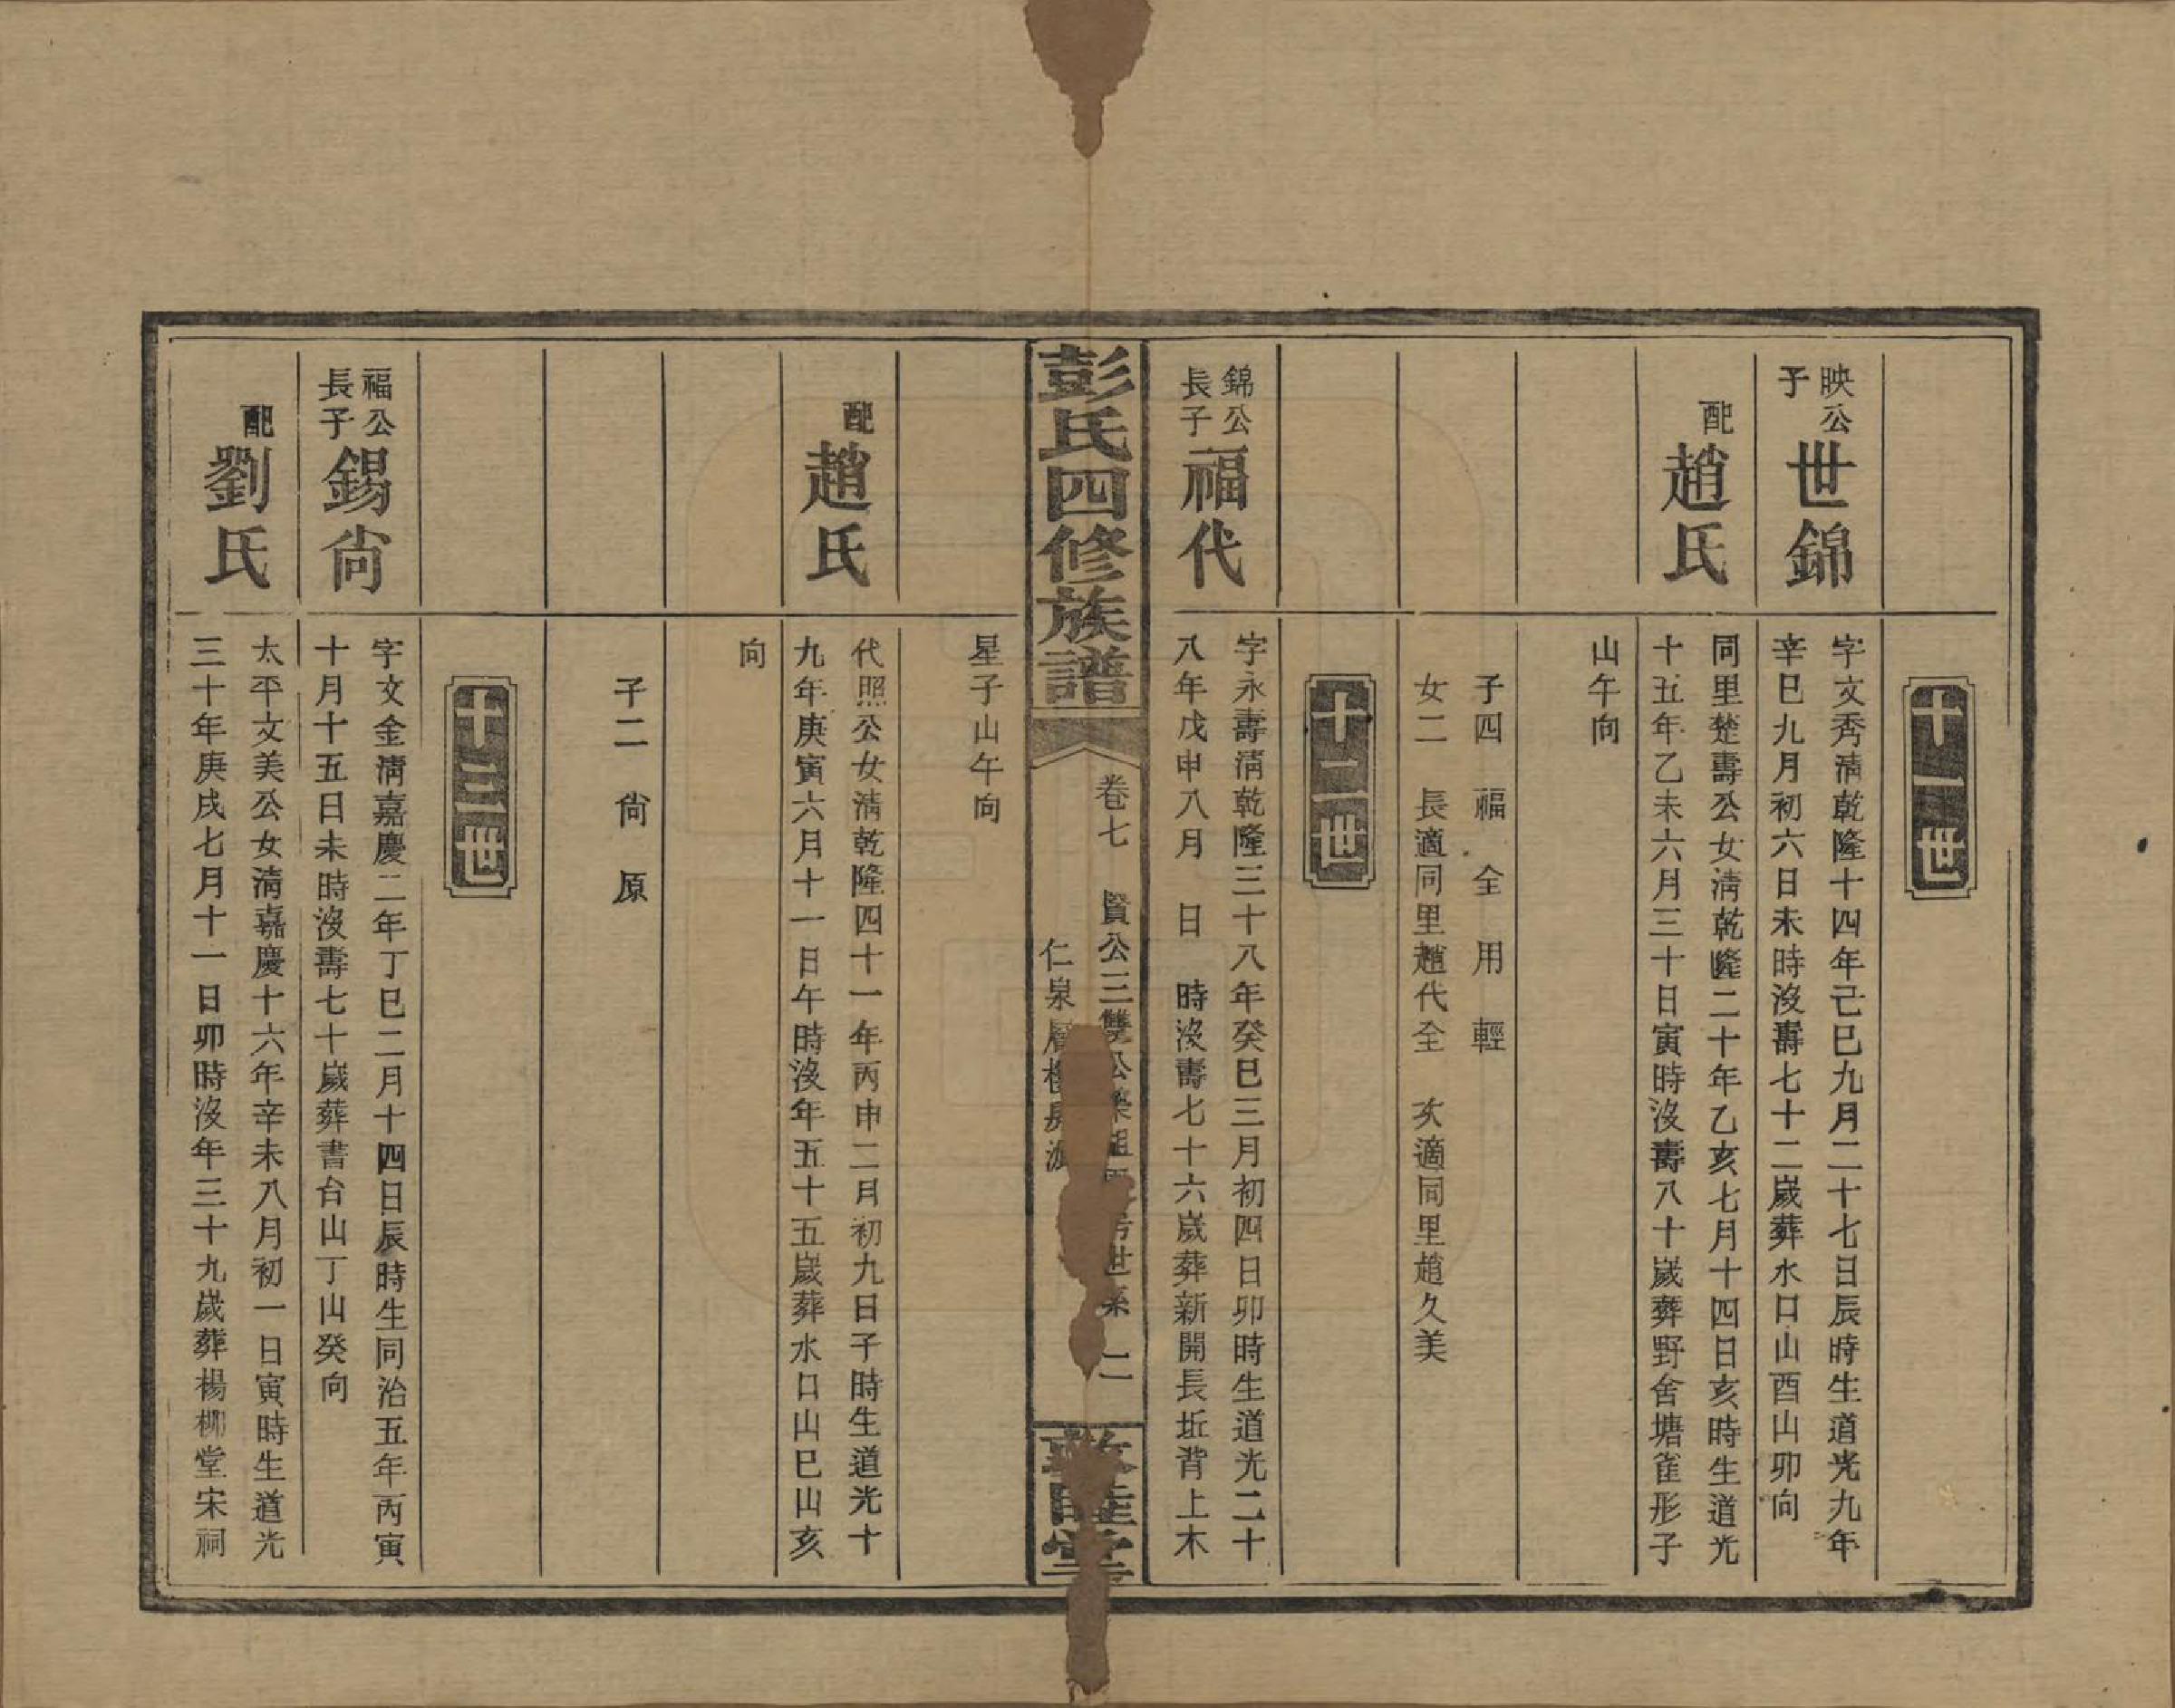 十一世
映公子
世錦
字文秀淸乾隆十四年己巳九月二十七日辰時生道光九年
辛巳九月初六日未時沒壽七十二歲葬水口山酉山卯向
配
趙氏
同里楚壽公女淸乾隆二十年乙亥七月十四日亥時生道光
十五年乙未六月三十日寅時沒壽八十歲葬野舍塘雀形子
山午向
子四 福 全 用 輕
女二 長適同里趙代全 次適同里趙久美
十二世
錦公長子
福代
字永壽淸乾隆三十八年癸巳三月初四日卯時生道光二十
八年戊申八月 日 時沒壽七十六歲葬新開長坵背上木
星子山午向
彭氏四修族譜
卷七 賢公三雙公
仁泉
世系 二
睦堂
配
趙氏
代照公女淸乾隆四十一年丙申二月初九日子時生道光十
九年庚寅六月十一日午時沒年五十五歲葬水口山巳山亥
向
子二 尙 原
十三世
福公長子
錫尙
字文金淸嘉慶二年丁巳二月十四日辰時生同治五年丙寅
十月十五日未時沒壽七十歲葬書台山丁山癸向
配
劉氏
太平文美公女淸嘉慶十六年辛未八月初一日寅時生道光
三十年庚戌七月十一日卯時沒年三十九歲葬楊柳堂宋祠